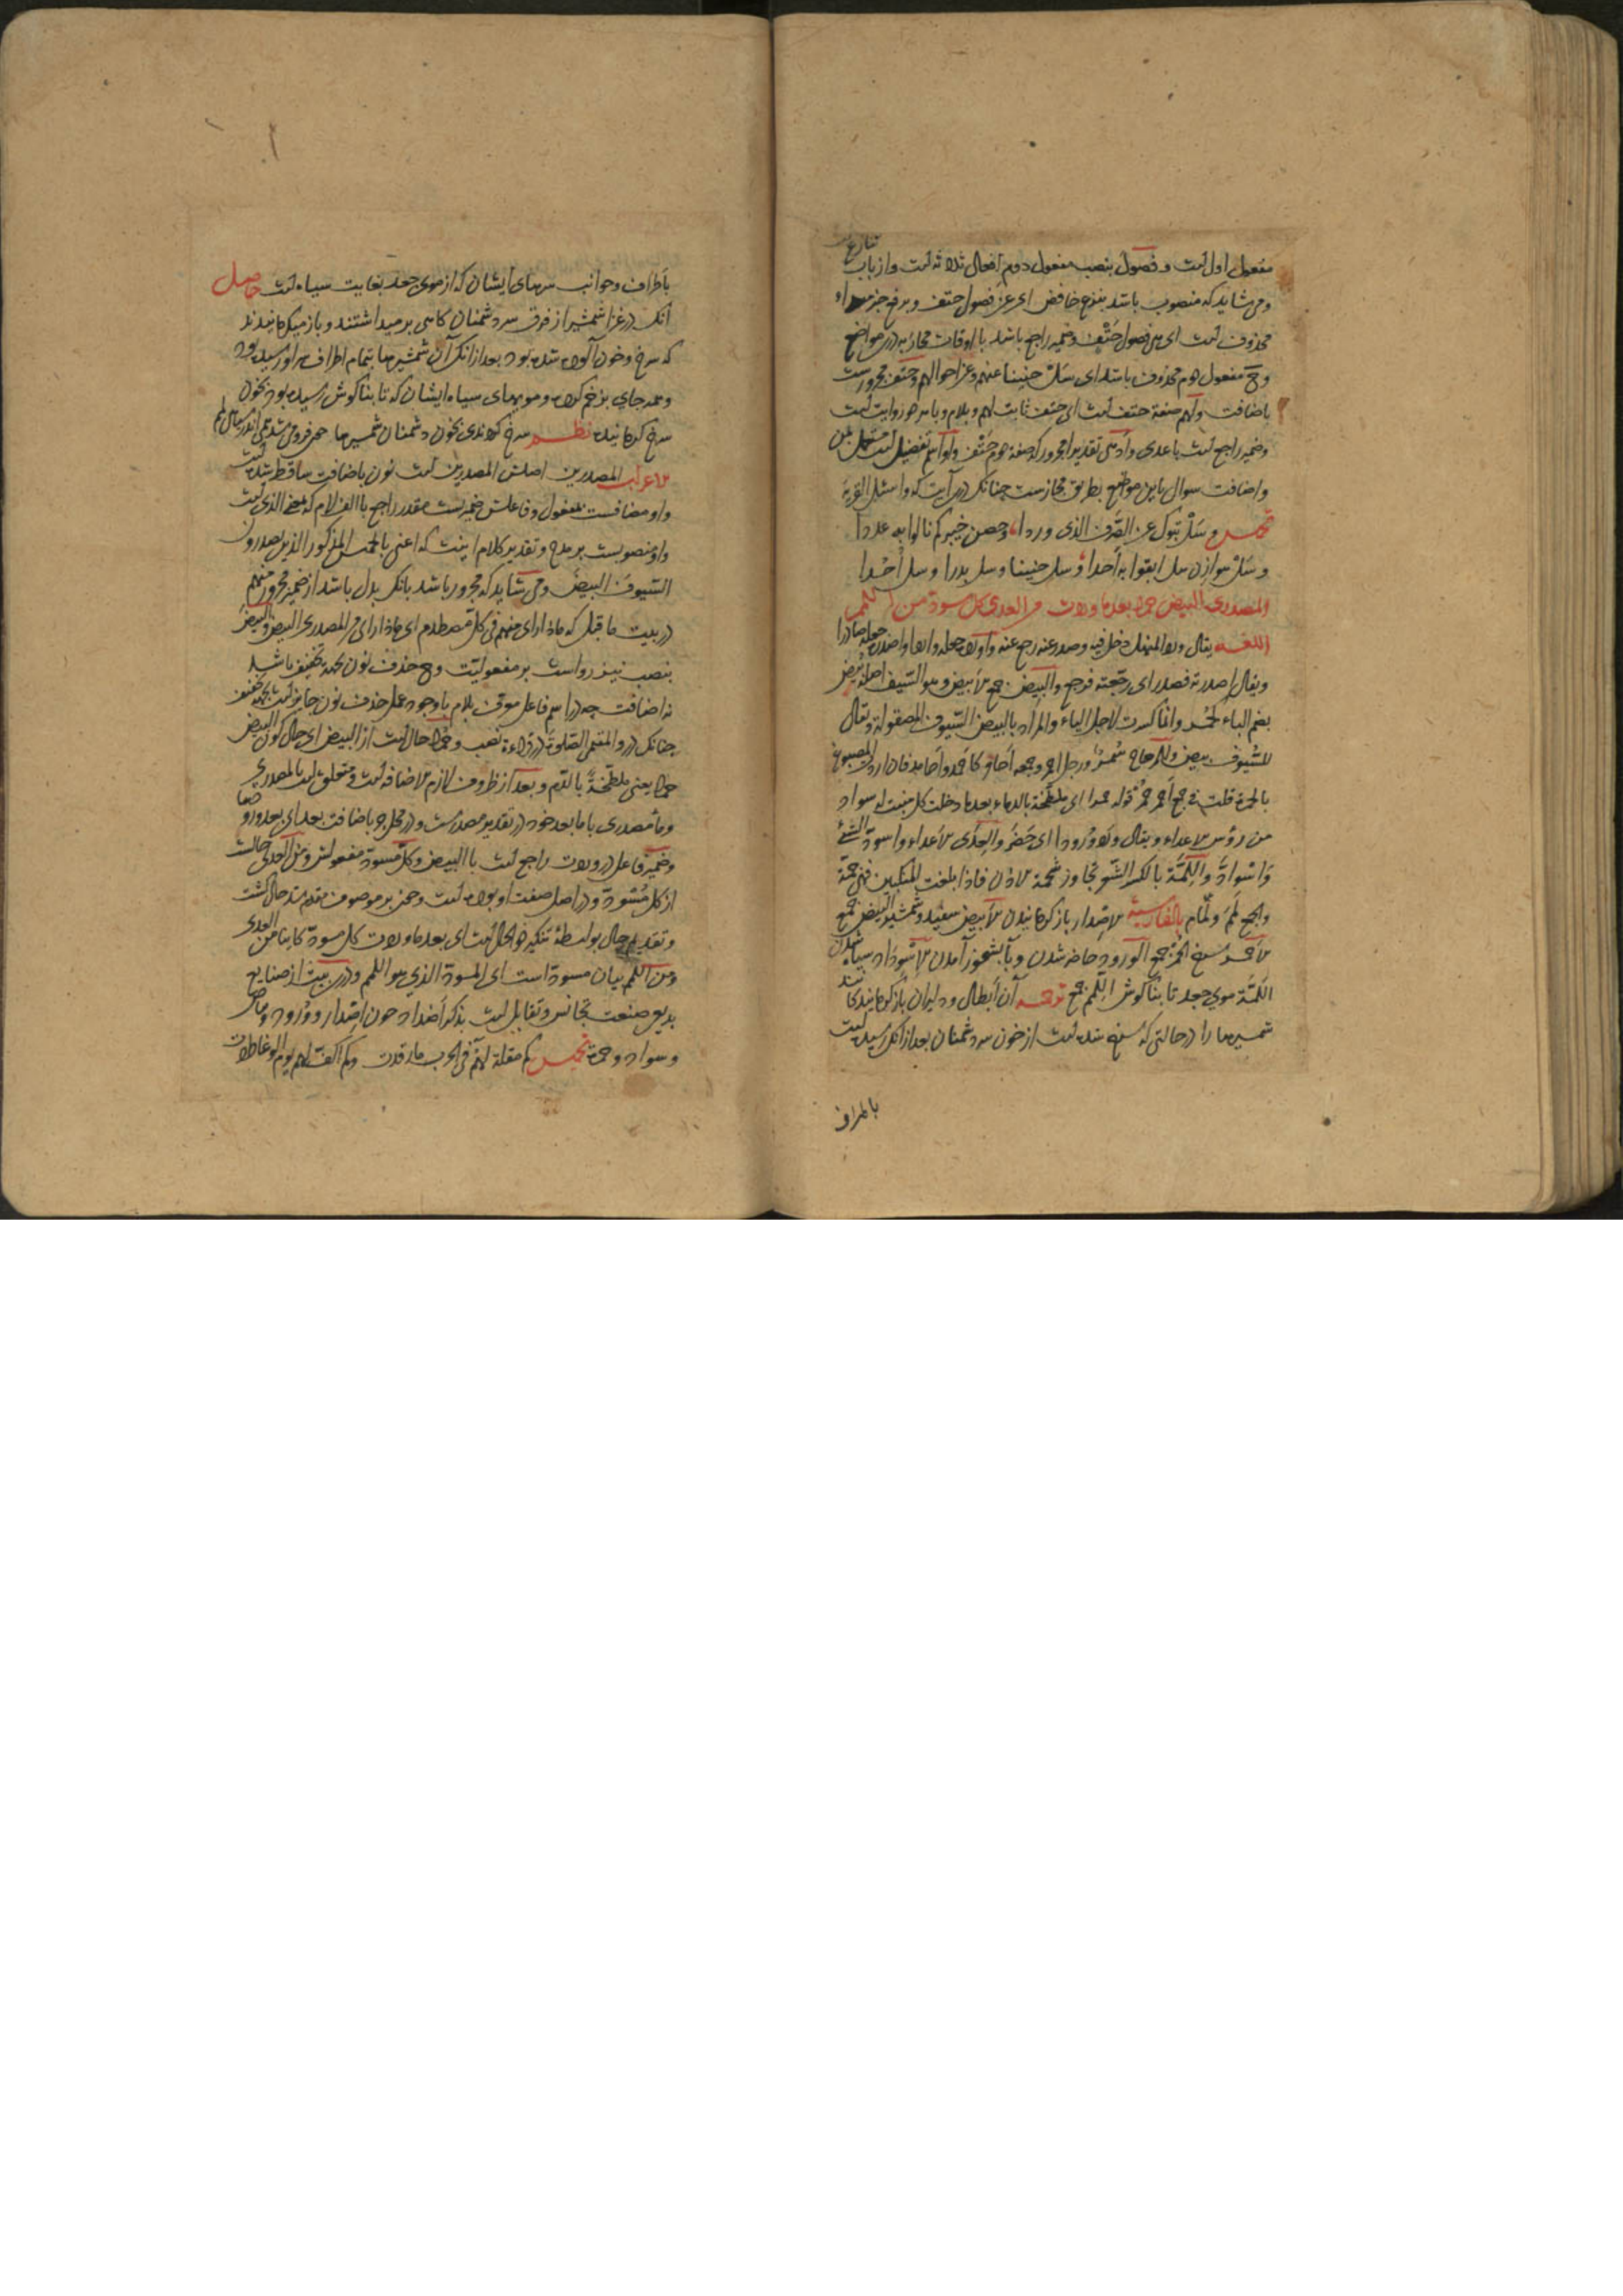 تنازع
مفعول اول است و فصول بنصب مفعول دوم افعال ثلاثه است و از باب
و می شاید که منصوب باشد بنزع خافض ای عن فصول حتف و برفع خبر مبتداء
محذوف است ای هی فصول حتف و ضمیر راجع باشد با اوقات محاربه درین مواضع
و مفعول دوم محذوف باشد ای سل حنینا عنهم و عن احوالهم و حتف مجرورست
باضافت و لهم صفة حتف است ای حتف ثابت لهم و بلام و با هر دو روایت است
و ضمیر راجع است با عدی و ادهی تقدیرا مجرور که صفة دوم حتف و او اسم تفضیل است مستعمل بمن
و اضافت سوال باین مواضع بطریق مجازست چنانک در آیت که واسئل القریة
تخمیس وسل تبوک عن الصرف الذی وردا وحصن خیبر کم نالوا به عددا
وسل هوازن هل ابقوا به احدا وسل حنینا وسل بدرا وسل احدا
المصدری البیض حمرا بعدما وردت من العدی کل مسودة من اللمم
اللغة یقال ورد المنهل دخل فیه وصدر عنه رجع عنه واورده جعله واردا واصدره جعله صادرا
ویقال اصدرته فصدر ای رجعته فرجع والبیض جمع الابیض وهو السیف اصله بیض
بضم الباء کحمر وانما کسرت لاجل الیاء والمراد بالبیض السیوف المصقولة ویقال
للسیوف بیض وللرماح سمر ورجل احمر وجمعه احامر کاحمد واحامد فان اردت المصبوغ
بالحمرة قلت فی جمع احمر حمر قوله حمرا ای ملطخة بالدماء بعدما دخلت کل منبت له سواد
من رؤس الاعداء ویقال ورد ورودا ای حضر والعدی الاعداء واسود الشئ
واسواد واللمة بالکسر الشعر تجاوز شحمة الاذن فاذا بلغت المنکبین فهی جمة
والجمع لمم ولمام بالفارسیة الاصدار باز گردانیدن الابیض سفید و شمشیر البیض جمع
الاحمر سرخ الحمر جمع الورود حاضر شدن و بآبشخور آمدن الاسوداد سیاه شدن
اللمة موی جعد تا بناگوش اللمم جمع ترجمه آن ابطال و دلیران باز گردانند کا
شمشیرها را در حالتی که سرخ شده است از خون سر دشمنان بعد از انک رسیده است
باطراف
باطراف و جوانب سرهای ایشان که از موی جعد بغایت سیاه است حاصل
آنک در غزا شمشیر از فرق سر دشمنان گاهی بر میداشتند و باز میگردانیدند
که سرخ و خون آلوده شده بود بعد از انک آن شمشیرها بتمام اطراف سر او رسیده بود
و همه جای بزخم کرده و مویهای سیاه ایشان که تا بناگوش رسیده بود بخون
سرخ گردانیده نظم سرخ گردندی بخون دشمنان شمشیرها
الاعراب المصدرین اصلش المصدرین است نون باضافت ساقط شده است
و او مضافست بمفعول و فاعلش ضمیریست مقدر راجع با الف لام که بمعنی الذی است
و او منصوبست بر مدح و تقدیر کلام اینست که اعنی بالخمیس المذکور الذین یصدرون
السیوف البیض و می شاید که مجرور باشد بانک بدل باشد از ضمیر مجرور منهم
در بیت ما قبل که ماذا رای منهم فی کل مصطدم ای ماذا رای من المصدری البیض و البیض
بنصب نیز رواست بر مفعولیت و حذف نون بجهة تخفیف باشد
نه اضافت چه در اسم فاعل معرف بلام با وجود عمل حذف نون جایز است بجهة تخفیف
چنانک در والمقیمی الصلوة در قراءة نصب و حمرا حال است از البیض ای حال کون البیض
حمرا یعنی ملطخة بالدم و بعد از ظروف لازم الاضافه است و متعلق است بالمصدری
و ما مصدری با ما بعد خود در تقدیر مصدرست و در محل جر باضافت بعد ای بعد ورودها
و ضمیر فاعل در وردت راجع است با البیض و کل مسودة مفعولش و من العدی حالست
از کل مسودة و در اصل صفت او بوده است و چون بر موصوف مقدم شد حال گشت
و تقدیم حال بواسطهٔ تنکیر ذو الحال است ای بعدما وردت کل مسودة کاینا من العدی
و من اللمم بیان مسودة است ای المسودة الذی هو اللمم و درین بیت از صنایع
بدیع صنعت تجانس و تقابل است بذکر اضداد چون اصدار و ورود و بیاض
و سواد و حمرة تخمیس کم مقلة لهم فی الحرب ما رقدت وکم اکف لهم یوم الوغا